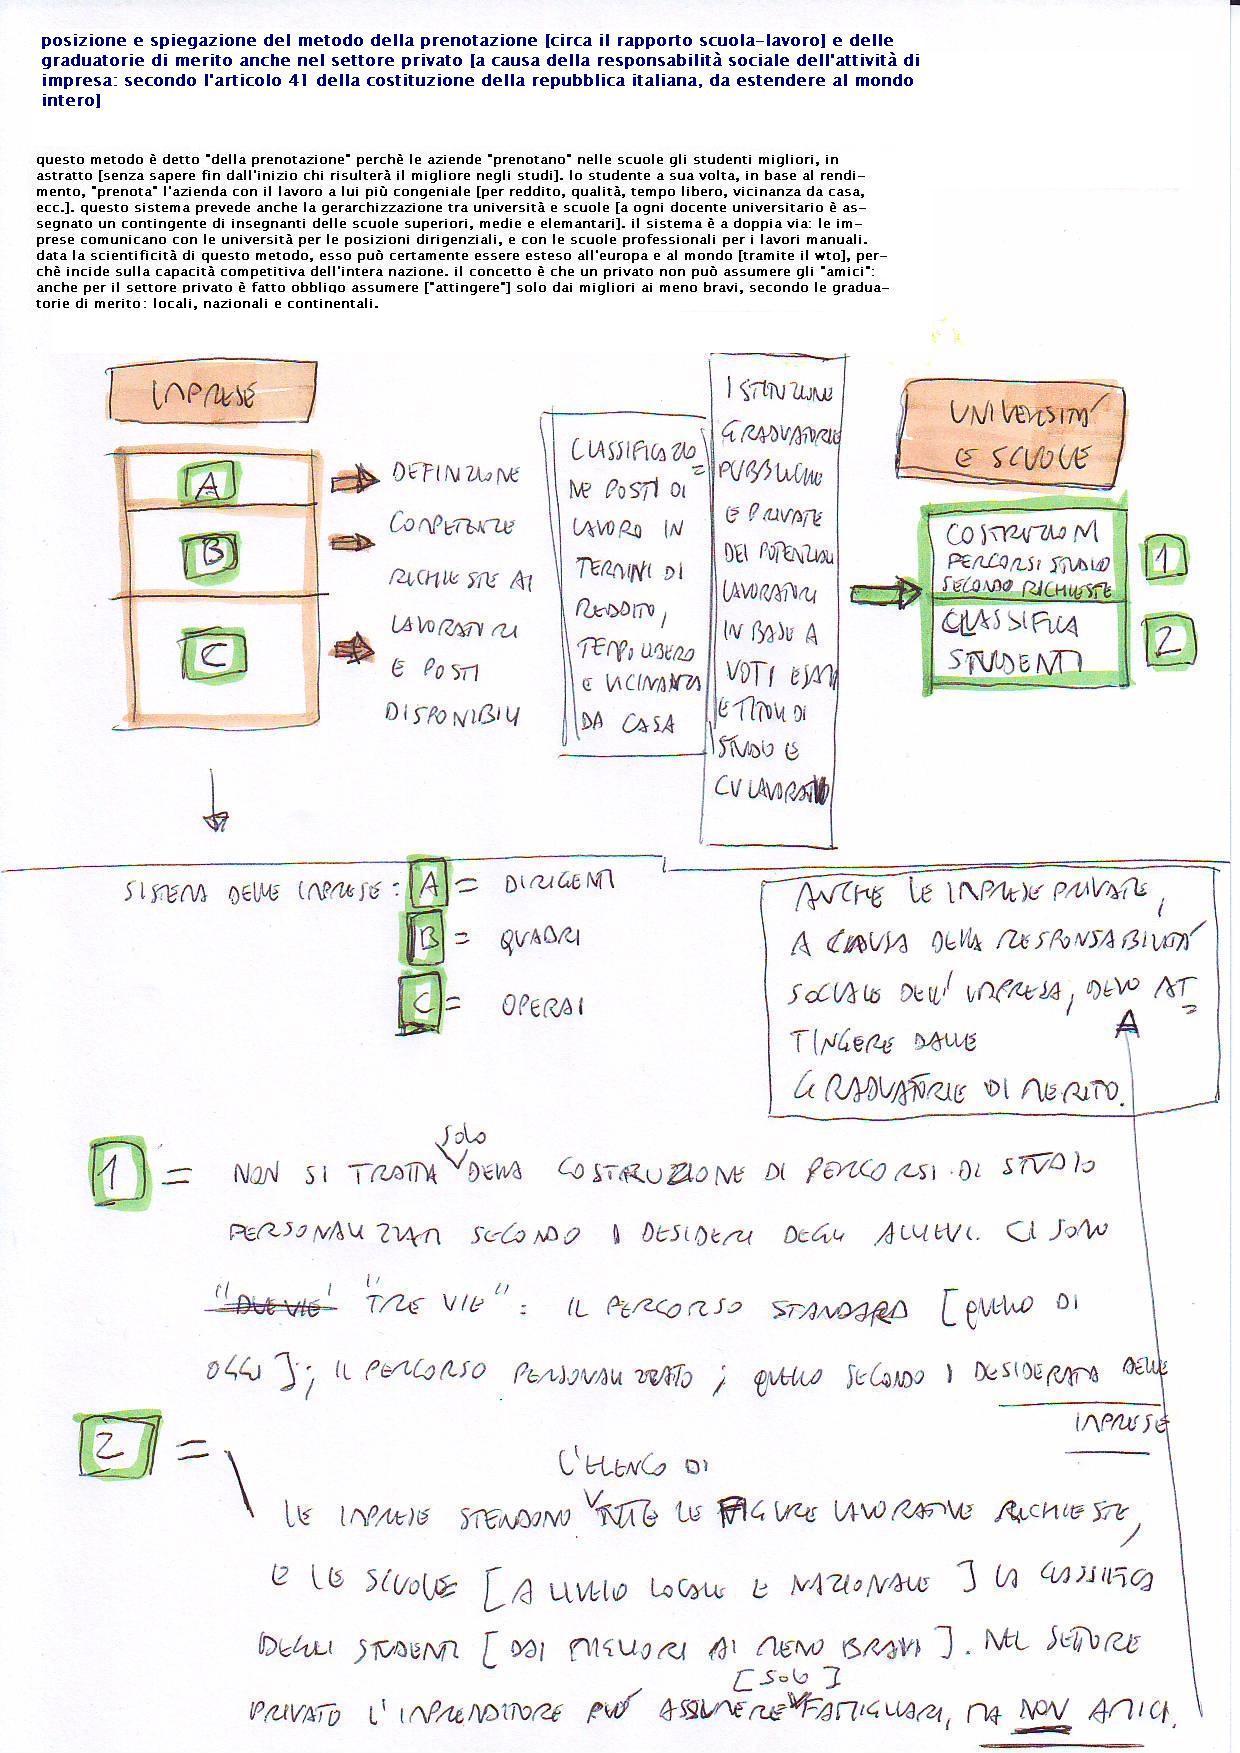 posizione e spiegazione del metodo della prenotazione [circa il rapporto scuola-lavoro] e delle
graduatorie di merito anche nel settore privato [a causa della responsabilità sociale dell'attività di
impresa: secondo l'articolo 41 della costituzione della repubblica italiana, da estendere al mondo
intero]
questo metodo è detto "della prenotazione" perchè le aziende "prenotano" nelle scuole gli studenti migliori, in
astratto [senza sapere fin dall'inizio chi risulterà il migliore negli studi]. lo studente a sua volta, in base al rendi-
mento, "prenota" l'azienda con il lavoro a lui più congeniale [per reddito, qualità, tempo libero, vicinanza da casa,
ecc.]. questo sistema prevede anche la gerarchizzazione tra università e scuole [a ogni docente universitario è as-
segnato un contingente di insegnanti delle scuole superiori, medie e elemantari]. il sistema è a doppia via: le im-
prese comunicano con le università per le posizioni dirigenziali, e con le scuole professionali per i lavori manuali.
data la scientificità di questo metodo, esso può certamente essere esteso all'europa e al mondo [tramite il wto], per-
chè incide sulla capacità competitiva dell'intera nazione. il concetto è che un privato non può assumere gli "amici":
anche per il settore privato è fatto obbligo assumere ["attingere"] solo dai migliori ai meno bravi, secondo le gradua-
torie di merito: locali, nazionali e continentali.
IMPRESE
A
B
C
DEFINIZIONE
COMPETENZE
RICHIESTE AI
LAVORATORI
E POSTI
DISPONIBILI
CLASSIFICAZIO=
NE POSTI DI
LAVORO IN
TERMINI DI
REDDITO,
TEMPO LIBERO
E VICINANZA
DA CASA
ISTITUZIONE
GRADUATORIE
PUBBLICHE
E PRIVATE
DEI POTENZIALI
LAVORATORI
IN BASE A
VOTI ESAMI
E TITOLI DI
STUDIO E
CV LAVORATIVO
UNIVERSITÀ
E SCUOLE
COSTRUZIONI
PERCORSI STUDIO
SECONDO RICHIESTE
CLASSIFICA
STUDENTI
1
2
SISTEMA DELLE IMPRESE: A = DIRIGENTI
B = QUADRI
C = OPERAI
ANCHE LE IMPRESE PRIVATE,
A CAUSA DELLA RESPONSABILITÀ
SOCIALE DELL'IMPRESA, DEVO AT=
TINGERE DALLE
GRADUATORIE DI MERITO.
A
1 = NON SI TRATTA solo DELLA COSTRUZIONE DI PERCORSI DI STUDIO
PERSONALIZZATI SECONDO I DESIDERI DEGLI ALLIEVI. CI SONO
"DUE VIE" "TRE VIE": IL PERCORSO STANDARD [QUELLO DI
OGGI]; IL PERCORSO PERSONALIZZATO; QUELLO SECONDO I DESIDERATA DELLE
IMPRESE
2 =
L'ELENCO DI
LE IMPRESE STENDONO TUTTE LE FIGURE LAVORATIVE RICHIESTE,
E LE SCUOLE [A LIVELLO LOCALE E NAZIONALE] LA CLASSIFICA
DEGLI STUDENTI [DAI MIGLIORI AI MENO BRAVI]. NEL SETTORE
[SOLO]
PRIVATO L'IMPRENDITORE PUÒ ASSUMERE FAMIGLIARI, MA NON AMICI.